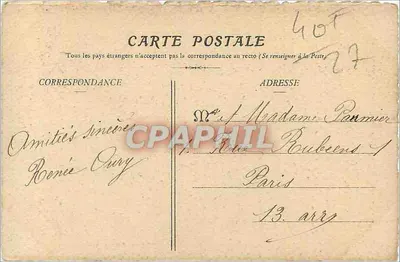 40F
27
CARTE POSTALE
Tous les pays étrangers n'acceptent pas la correspondance au recto (Se renseigner à la Poste)
CORRESPONDANCE
ADRESSE
Amitiés sincères
Renée Oury
Mr et Madame Paumier
1, Rue Rubens 1
Paris
13. arr
CPAPHIL